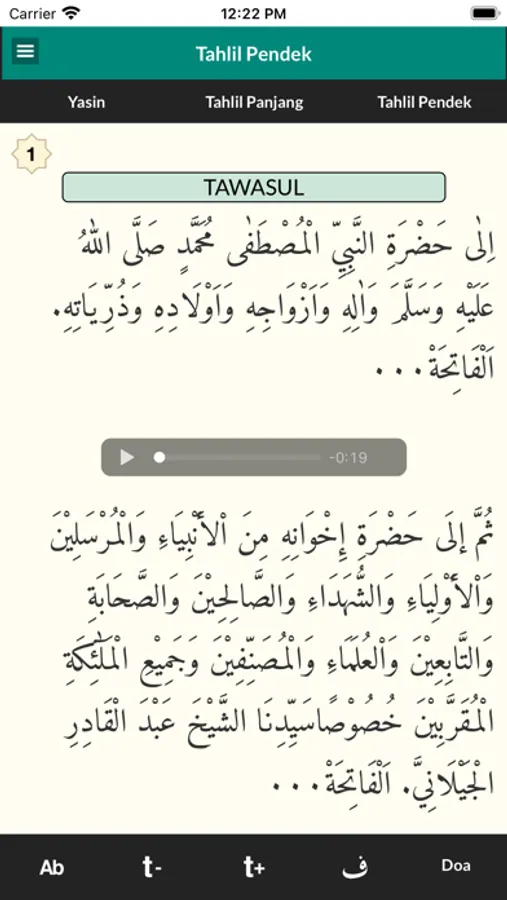 Carrier 12:22 PM
Tahlil Pendek
Yasin Tahlil Panjang Tahlil Pendek
1
TAWASUL
اِلٰى حَضْرَةِ النَّبِيِّ الْمُصْطَفٰى مُحَمَّدٍ صَلَّى اللهُ
عَلَيْهِ وَسَلَّمَ وَاٰلِهِ وَاَزْوَاجِهِ وَاَوْلَادِهِ وَذُرِّيَاتِهِ.
اَلْفَاتِحَةْ...
-0:19
ثُمَّ إلَى حَضْرَةِ إِخْوَانِهِ مِنَ اْلأَنْبِيَاءِ وَالْمُرْسَلِيْنَ
وَاْلأَوْلِيَاءِ وَالشُّهَدَاءِ وَالصَّالِحِيْنَ وَالصَّحَابَةِ
وَالتَّابِعِيْنَ وَالْعُلَمَاءِ وَالْمُصَنِّفِيْنَ وَجَمِيْعِ الْمَلَٰئِكَةِ
الْمُقَرَّبِيْنَ خُصُوْصًاسَيِّدِنَا الشَّيْخَ عَبْدَ الْقَادِرِ
الْجَيْلَانِيَّ. اَلْفَاتِحَةْ...
Ab t- t+ ف Doa